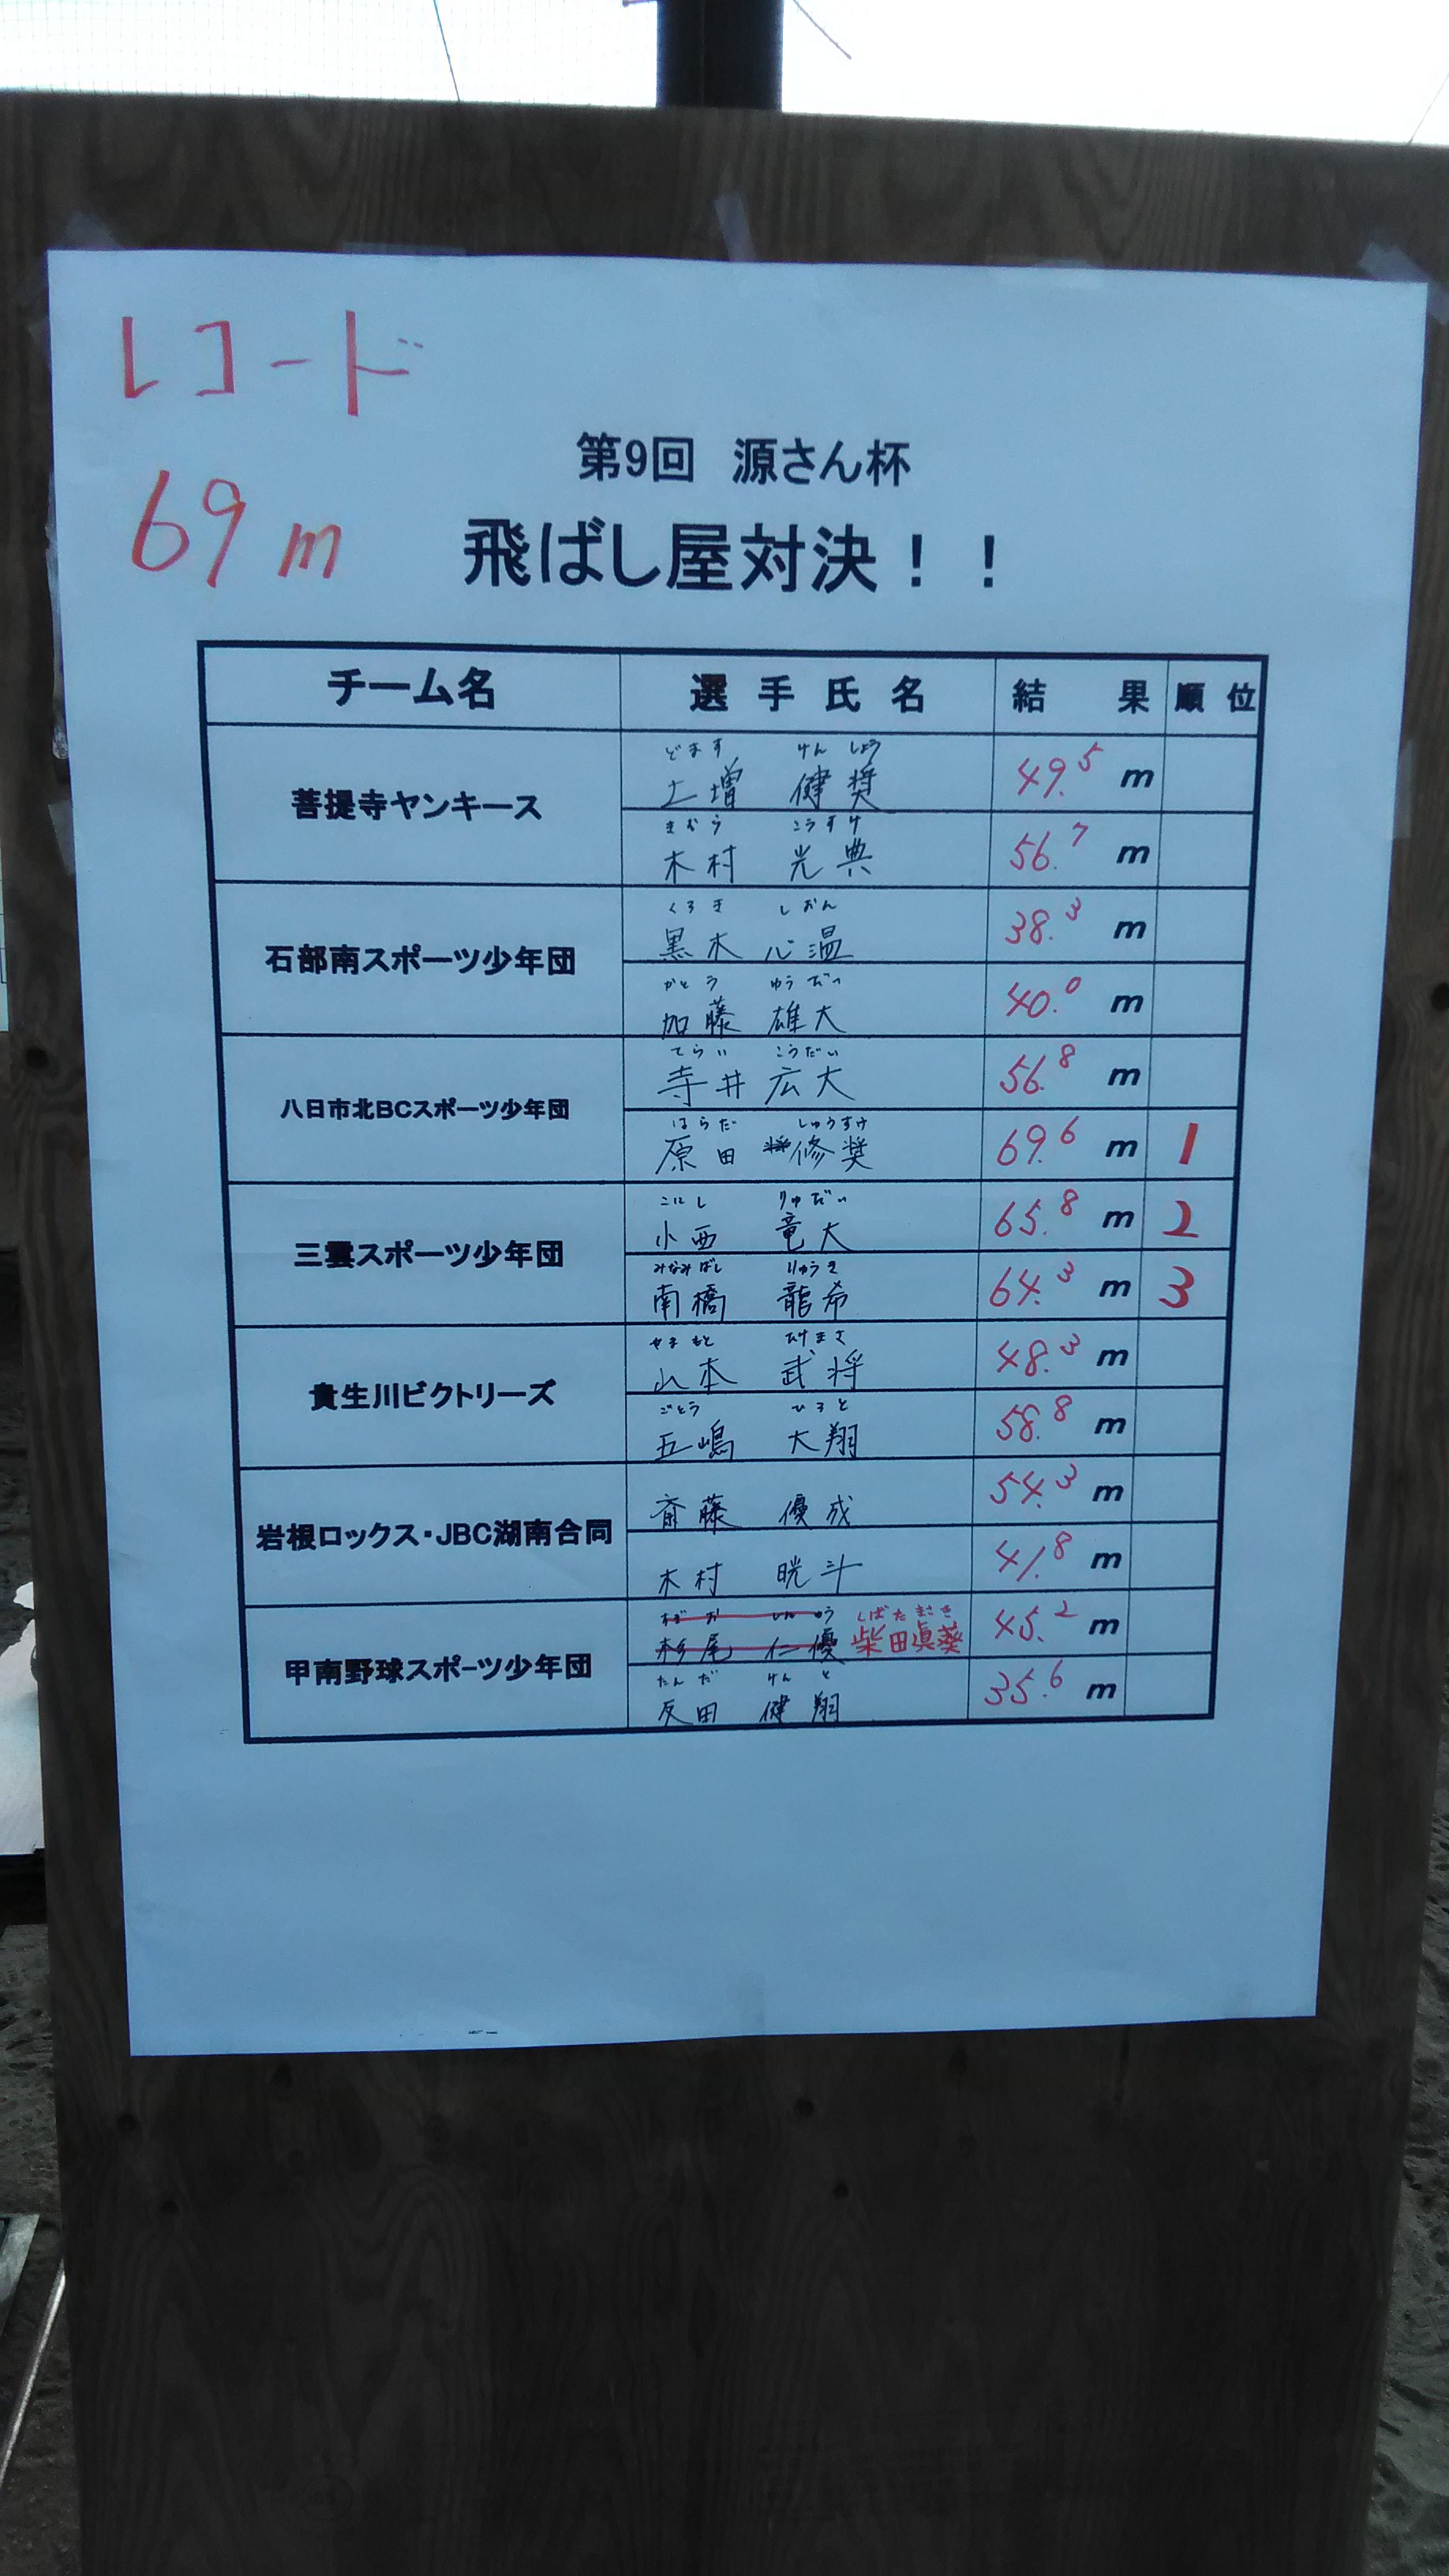 レコード
69m
第9回 源さん杯
飛ばし屋対決！！
チーム名 選手氏名 結果 順位
菩提寺ヤンキース
どます けんしょう
土増 健奨 49.5 m
きむら こうすけ
木村 光典 56.7 m
石部南スポーツ少年団
くろき しおん
黒木 心温 38.3 m
かとう ゆうだい
加藤 雄大 40.0 m
八日市北BCスポーツ少年団
てらい こうだい
寺井 広大 56.8 m
はらだ しゅうすけ
原田 修奨 69.6 m 1
三雲スポーツ少年団
こにし りゅだい
小西 竜大 65.8 m 2
みなみばし りゅうき
南橋 龍希 64.3 m 3
貴生川ビクトリーズ
やまもと たけまさ
山本 武将 48.3 m
ごとう ひろと
五嶋 大翔 58.8 m
岩根ロックス・JBC湖南合同
斎藤 優成 54.3 m
木村 晄斗 41.8 m
甲南野球スポーツ少年団
すぎお しばたまさき
杉尾 仁優 柴田眞 45.2 m
たんだ けんと
反田 健翔 35.6 m